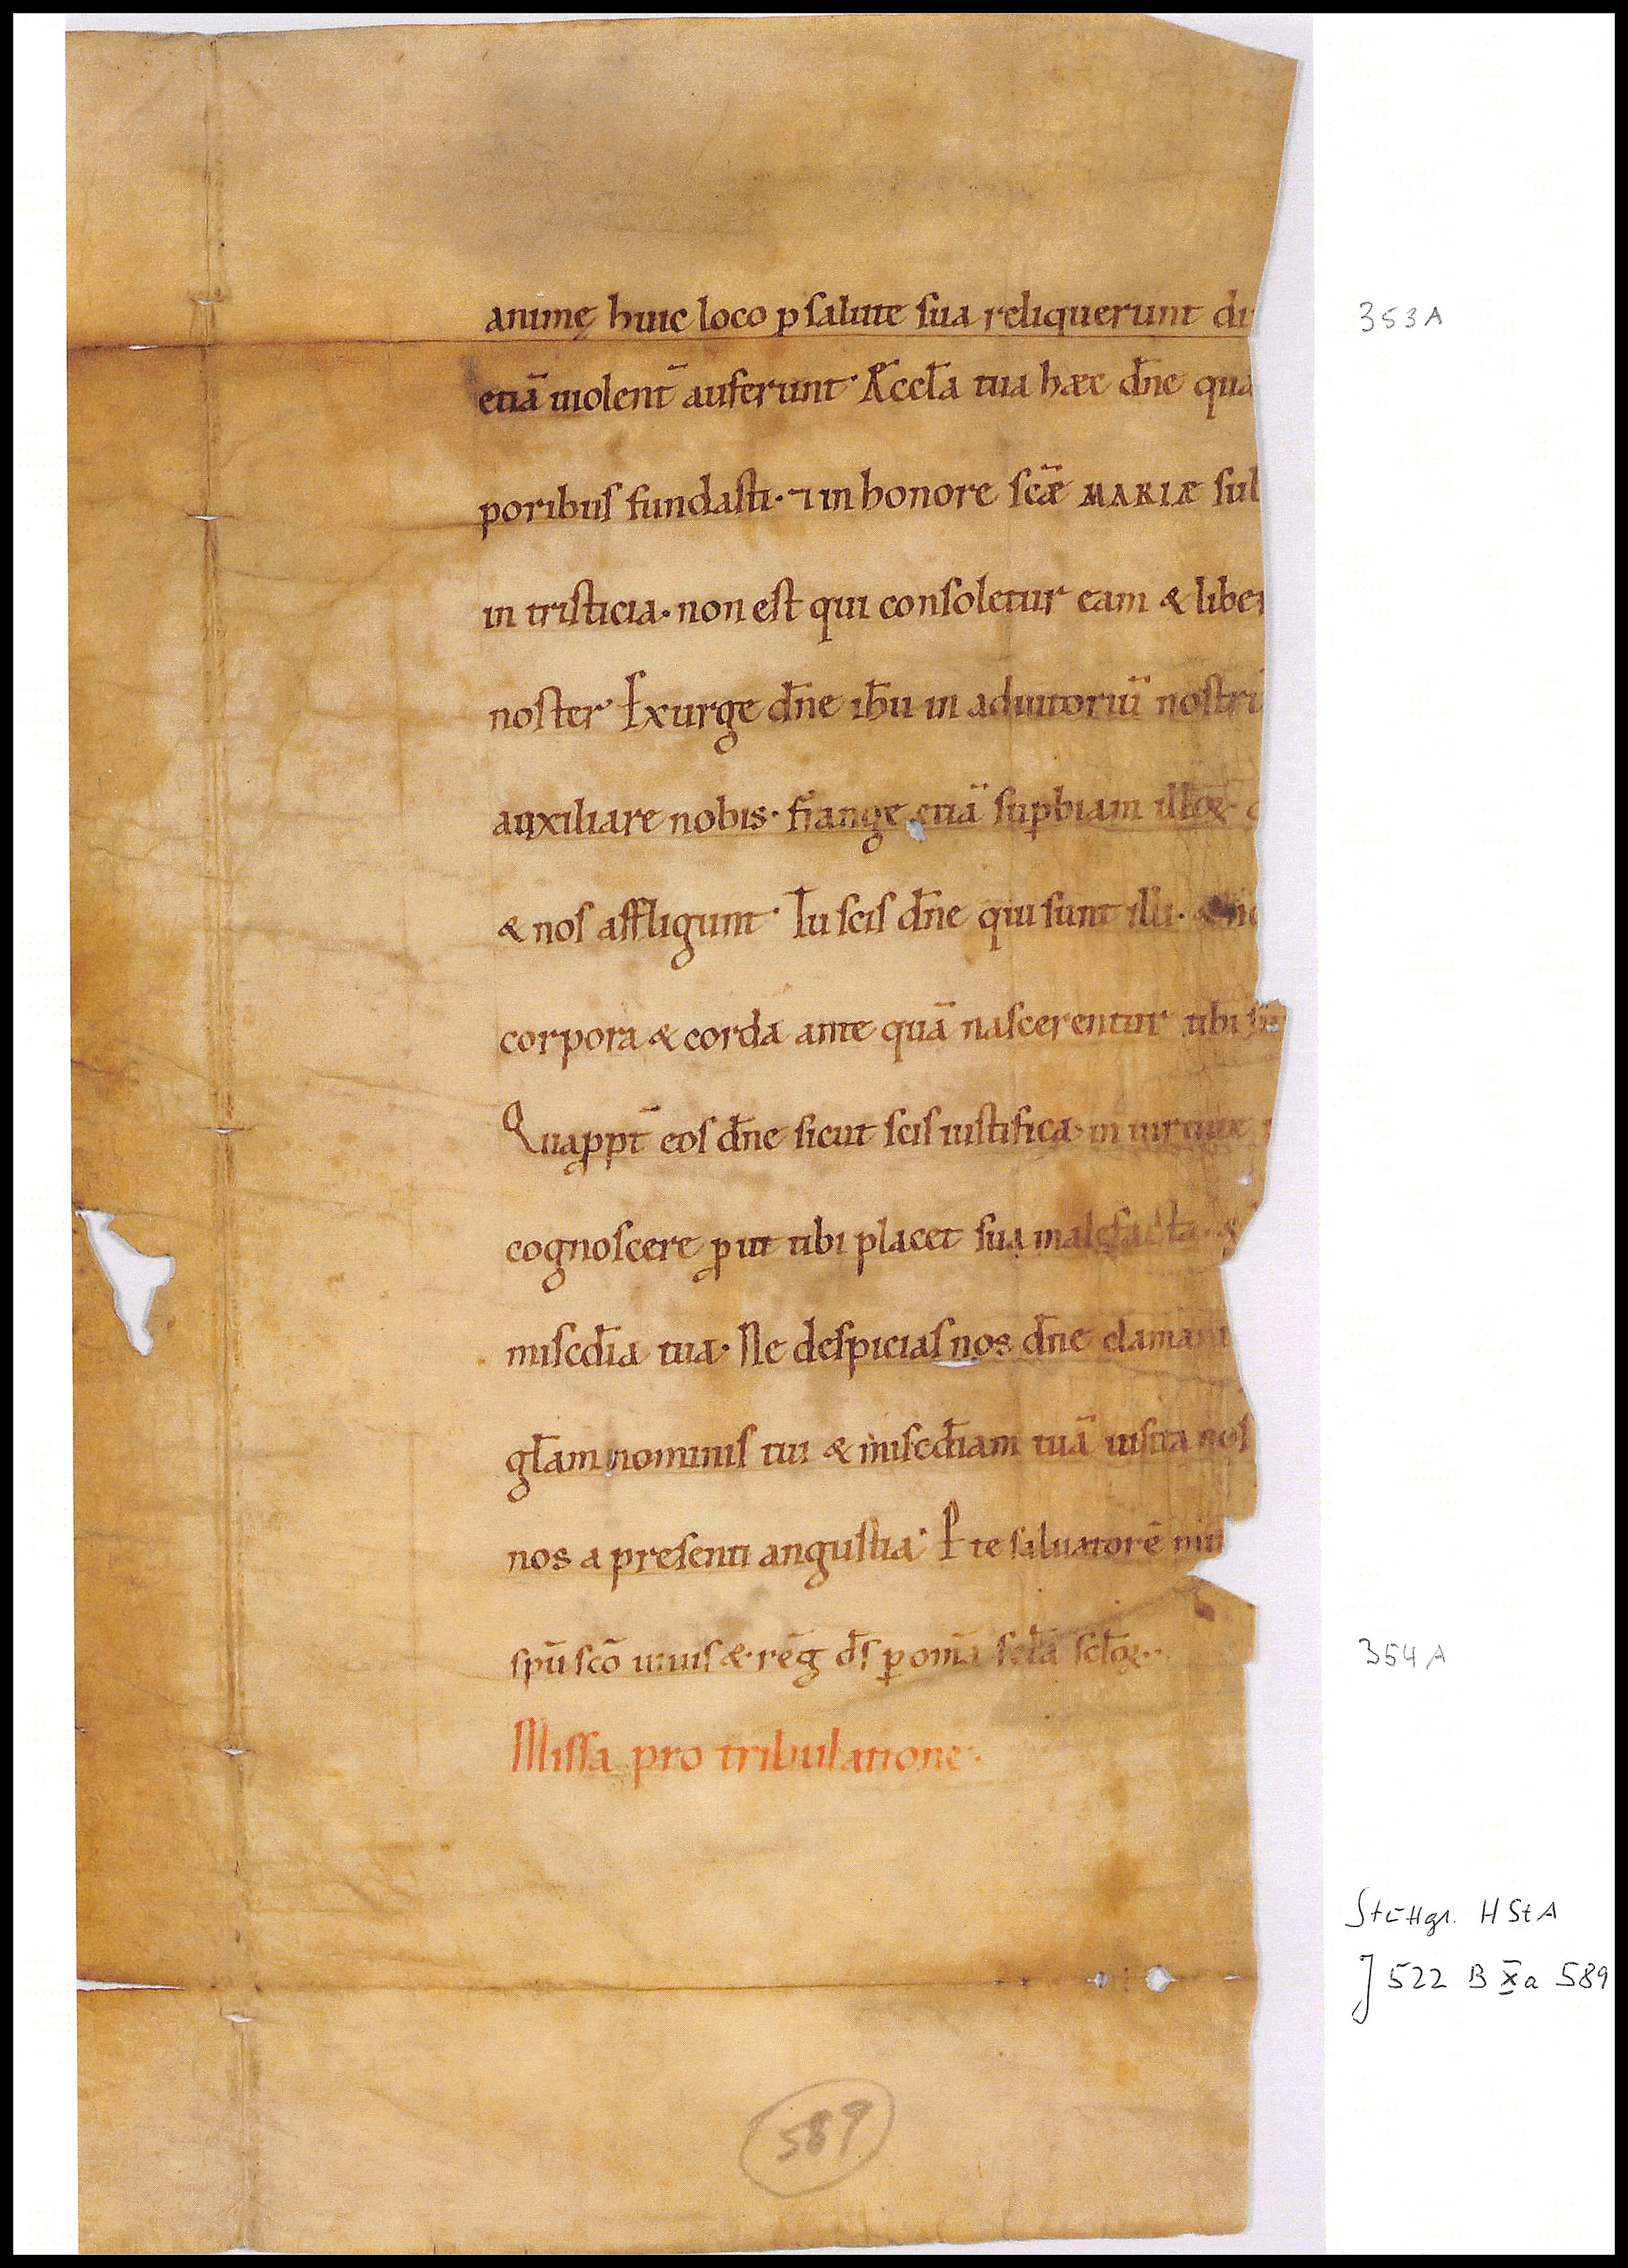 animę huic loco p salute sua reliquerunt di
etiā uiolent̄ auferunt. Æccl̄a tua hæc dn̄e qua
poribus fundasti. ⁊ in honore scǣ MARIÆ sub
in tristicia. non est qui consoletur eam & liber
noster. Exurge dn̄e ih̄u in adiutoriū nostrū
auxiliare nobis. frange etiā supbiam illoꝝ.
& nos affligunt. Tu scis dn̄e qui sunt illi.
corpora & corda ante quā nascerentur tibi
Quappt̄ eos dn̄e sicut scis iustifica in uirtute
cognoscere put tibi placet sua malefacta. &
misedīa tua. Ne despicias nos dn̄e clamant
gl̄am nominis tui & misedīam tuā uisita nos
nos a presenti angustia. P te saluatorē
spū scō uiuis & reḡ ds̄ p om̄a sc̄la sc̄loꝝ..
Missa pro tribulatione.
589
353A
354A
Stuttgt. HStA
J 522 B Xa 589